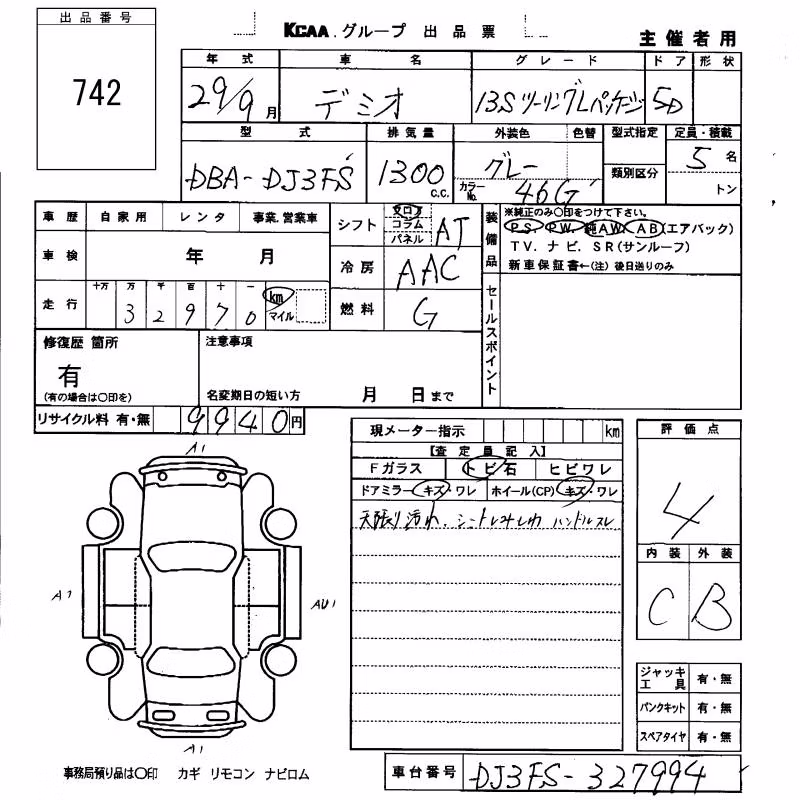 出品番号
742
KCAA.グループ 出品票
主催者用
年式 車名 グレード ドア 形状
29/9月 デミオ 13Sツーリング Lパッケージ 5D
型式 排気量 外装色 色替 型式指定 定員・積載
DBA-DJ3FS 1300 c.c. グレー カラーNo. 46G 類別区分 5名
トン
車歴 自家用 レンタ 事業.営業車
車検 年 月
走行 十万 万 千 百 十 一
3 2 9 7 0 km マイル
シフト フロア コラム パネル AT
冷房 AAC
燃料 G
装備品
※純正のみ○印をつけて下さい。
P.S. P.W. 純AW. AB(エアバック)
TV. ナビ. SR(サンルーフ)
新車保証書←(注) 後日送りのみ
セールスポイント
修復歴 箇所
有
(有の場合は○印を)
注意事項
名変期日の短い方 月 日まで
リサイクル料 有・無 9940円
現メーター指示 km
【査定員記入】
Fガラス トビ石 ヒビワレ
ドアミラー キズ・ワレ ホイール(CP) キズ・ワレ
天張り汚れ. シートヨゴレ ハンドルスレ
評価点
4
内装 外装
C B
A1
A1
AU1
A1
ジャッキ工具 有・無
パンクキット 有・無
スペアタイヤ 有・無
事務局預り品は○印 カギ リモコン ナビロム
車台番号 DJ3FS-327994